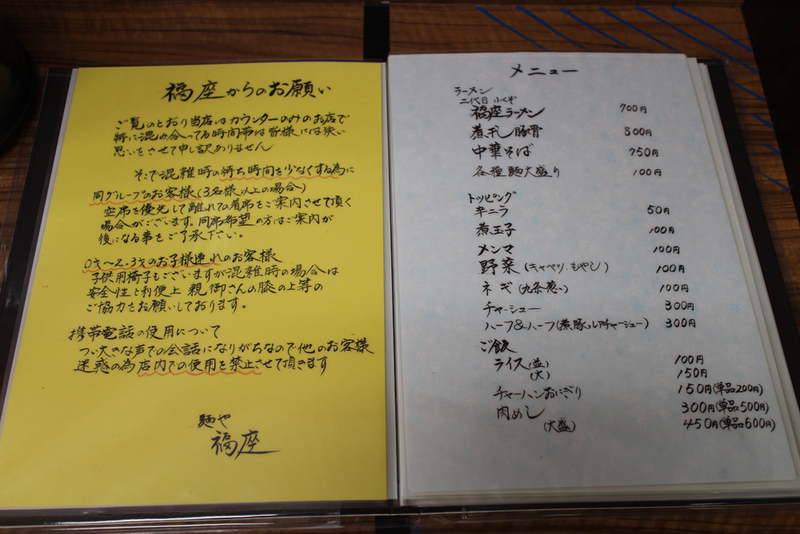 福座からのお願い
ご覧のとおり当店はカウンターのみのお店で
特に混み合ってる時間帯は皆様には狭い
思いをさせて申し訳ありません
そこで混雑時の待ち時間を少なくする為に
同グループのお客様(3名様以上の場合)
空席を優先して離れての着席をご案内させて頂く
場合がございます。同席希望の方はご案内が
後になる事をご了承下さい。
0才〜2.3才のお子様連れのお客様
子供用椅子もございますが混雑時の場合は
安全性と利便上 親御さんの膝の上等の
ご協力をお願いしております。
携帯電話の使用について
つい大きな声での会話になりがちなので他のお客様
迷惑の為店内での使用を禁止させて頂きます
麺や
福座
メニュー
ラーメン
二代目 ふくざ
福座ラーメン 700円
煮干し豚骨 800円
中華そば 750円
各種麺大盛り 100円
トッピング
辛ニラ 50円
煮玉子 100円
メンマ 100円
野菜(キャベツ、もやし) 100円
ネギ(九条葱) 100円
チャーシュー 300円
ハーフ&ハーフ(煮豚、レアチャーシュー) 300円
ご飯
ライス(並) 100円
(大) 150円
チャーハンおにぎり 150円(単品200円)
肉めし 300円(単品500円)
(大盛) 450円(単品600円)